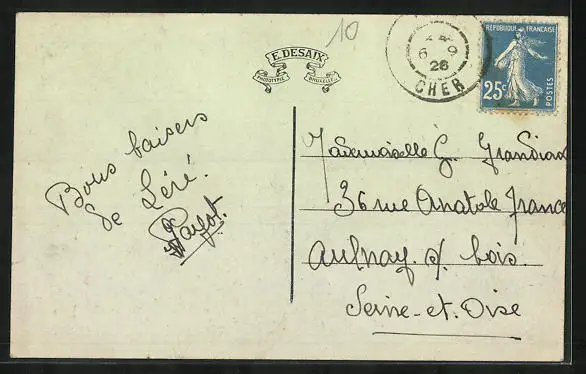 10
E. DESAIX
PHOTOTYPIE BRUXELLES
6 - 9
26
CHER
REPUBLIQUE FRANCAISE
25c
POSTES
Bons baisers
de Léré.
Mademoiselle G.
36 rue Anatole France
Aulnay s/ bois.
Seine-et-Oise